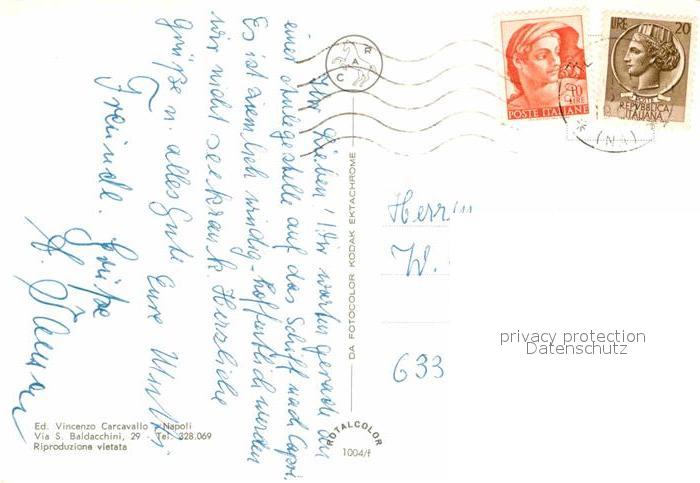 Ihr Lieben! Wir warten gerade an
einer Anlegestelle auf das Schiff nach Capri.
Es ist ziemlich windig - hoffentlich werden
wir nicht seekrank. Herzliche
Grüße u. alles Gute Eure
Freunde. Grüße
CAR
POSTE ITALIANE
LIRE 20
POSTE
REPVBBLICA
ITALIANA
(NA)
Herrn
W.
633
privacy protection
Datenschutz
DA FOTOCOLOR KODAK EKTACHROME
ROTALCOLOR
1004/f
Ed. Vincenzo Carcavallo - Napoli
Via S. Baldacchini, 29 - Tel. 328.069
Riproduzione vietata